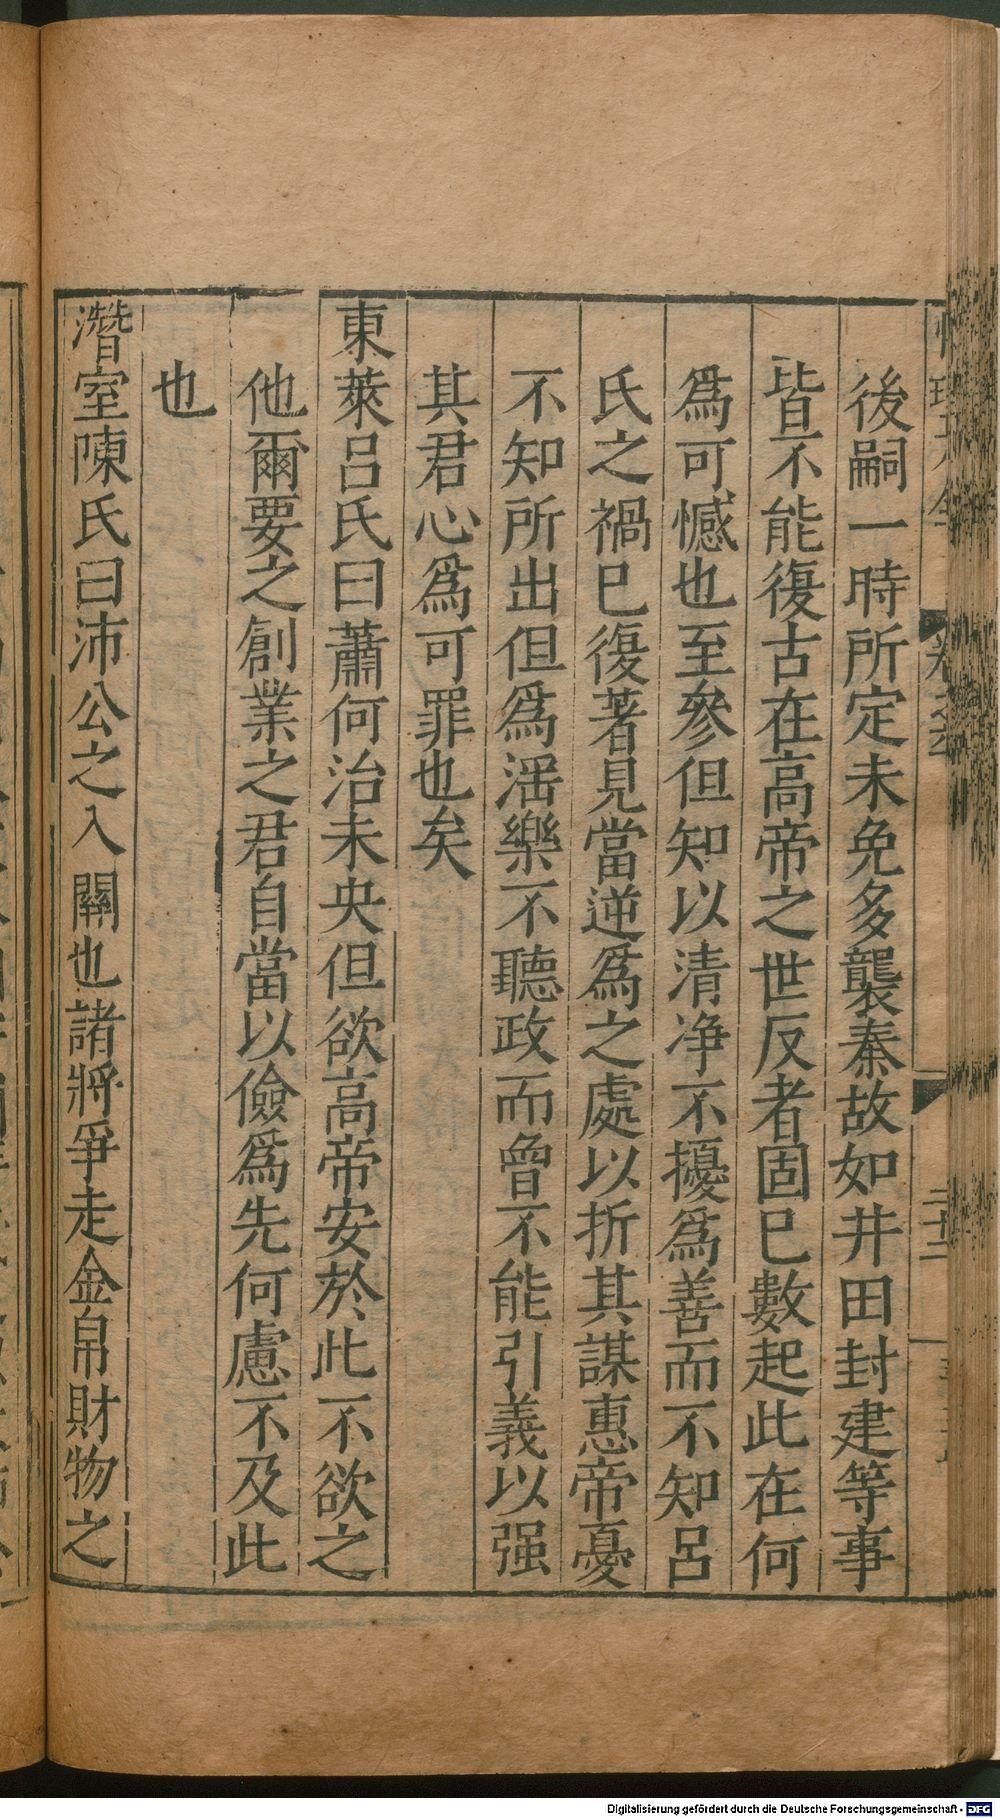 後嗣一時所定未免多襲秦故如井田封建等事
皆不能復古在高帝之世反者固已數起此在何
爲可憾也至參但知以清净不擾爲善而不知呂
氏之禍已復著見當逆爲之處以折其謀惠帝憂
不知所出但爲滛樂不聽政而曾不能引義以强
其君心爲可罪也矣
東萊呂氏曰蕭何治未央但欲高帝安於此不欲之
他爾要之創業之君自當以儉爲先何慮不及此
也
濳室陳氏曰沛公之入關也諸將爭走金帛財物之
Digitalisierung gefördert durch die Deutsche Forschungsgemeinschaft - DFG